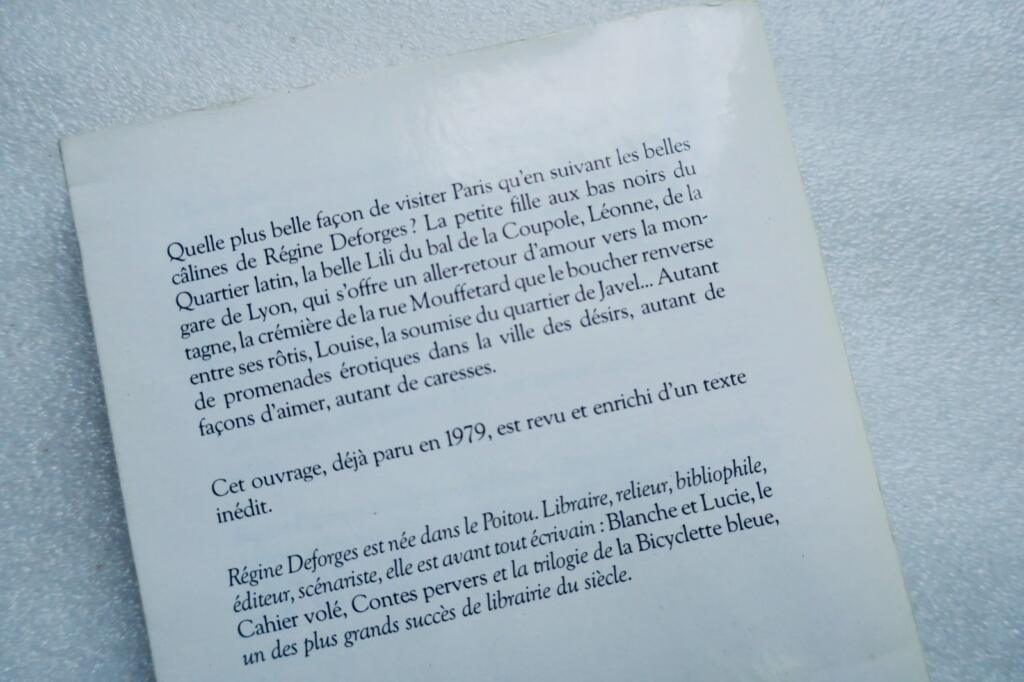 Quelle plus belle façon de visiter Paris qu'en suivant les belles
câlines de Régine Deforges ? La petite fille aux bas noirs du
Quartier latin, la belle Lili du bal de la Coupole, Léonne, de la
gare de Lyon, qui s'offre un aller-retour d'amour vers la mon-
tagne, la crémière de la rue Mouffetard que le boucher renverse
entre ses rôtis, Louise, la soumise du quartier de Javel... Autant
de promenades érotiques dans la ville des désirs, autant de
façons d'aimer, autant de caresses.
Cet ouvrage, déjà paru en 1979, est revu et enrichi d'un texte
inédit.
Régine Deforges est née dans le Poitou. Libraire, relieur, bibliophile,
éditeur, scénariste, elle est avant tout écrivain : Blanche et Lucie, le
Cahier volé, Contes pervers et la trilogie de la Bicyclette bleue,
un des plus grands succès de librairie du siècle.